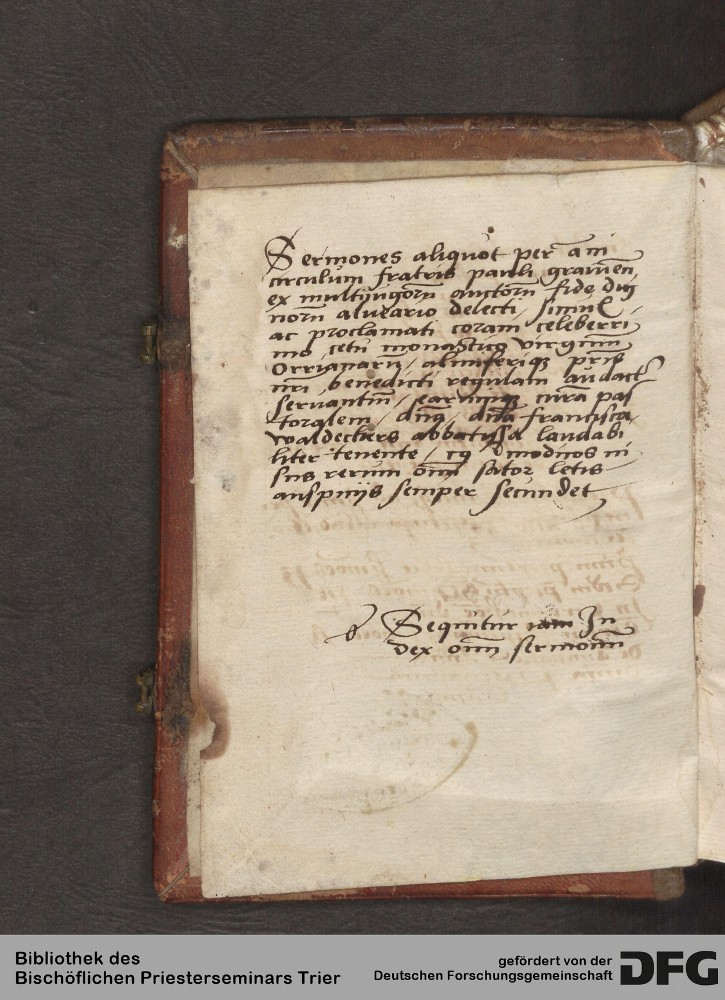 Sermones aliquot per ān̄i
circulum fratris pauli
ex multijugorū auctorū fide dig
norū alveario delecti, simul
ac proclamati coram celeberri
mo, cetu monastico virginū
Orrianarū, almiferiq; pr̄is
nr̄i, benedicti regulam audact
servantiū, earūmq; cura pas
toralem, dn̄a, Francisca
waldeckers abbatissa laudabi
liter tenente, modulos ni
sus rerum oīm sator letis
auspicijs semper secundet
Sequitur iam In
dex oīm sermonū
Bibliothek des
Bischöflichen Priesterseminars Trier
gefördert von der
Deutschen Forschungsgemeinschaft
DFG